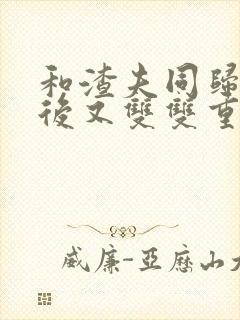 和渣夫同歸
後又雙雙重
威廉-亞歷山大